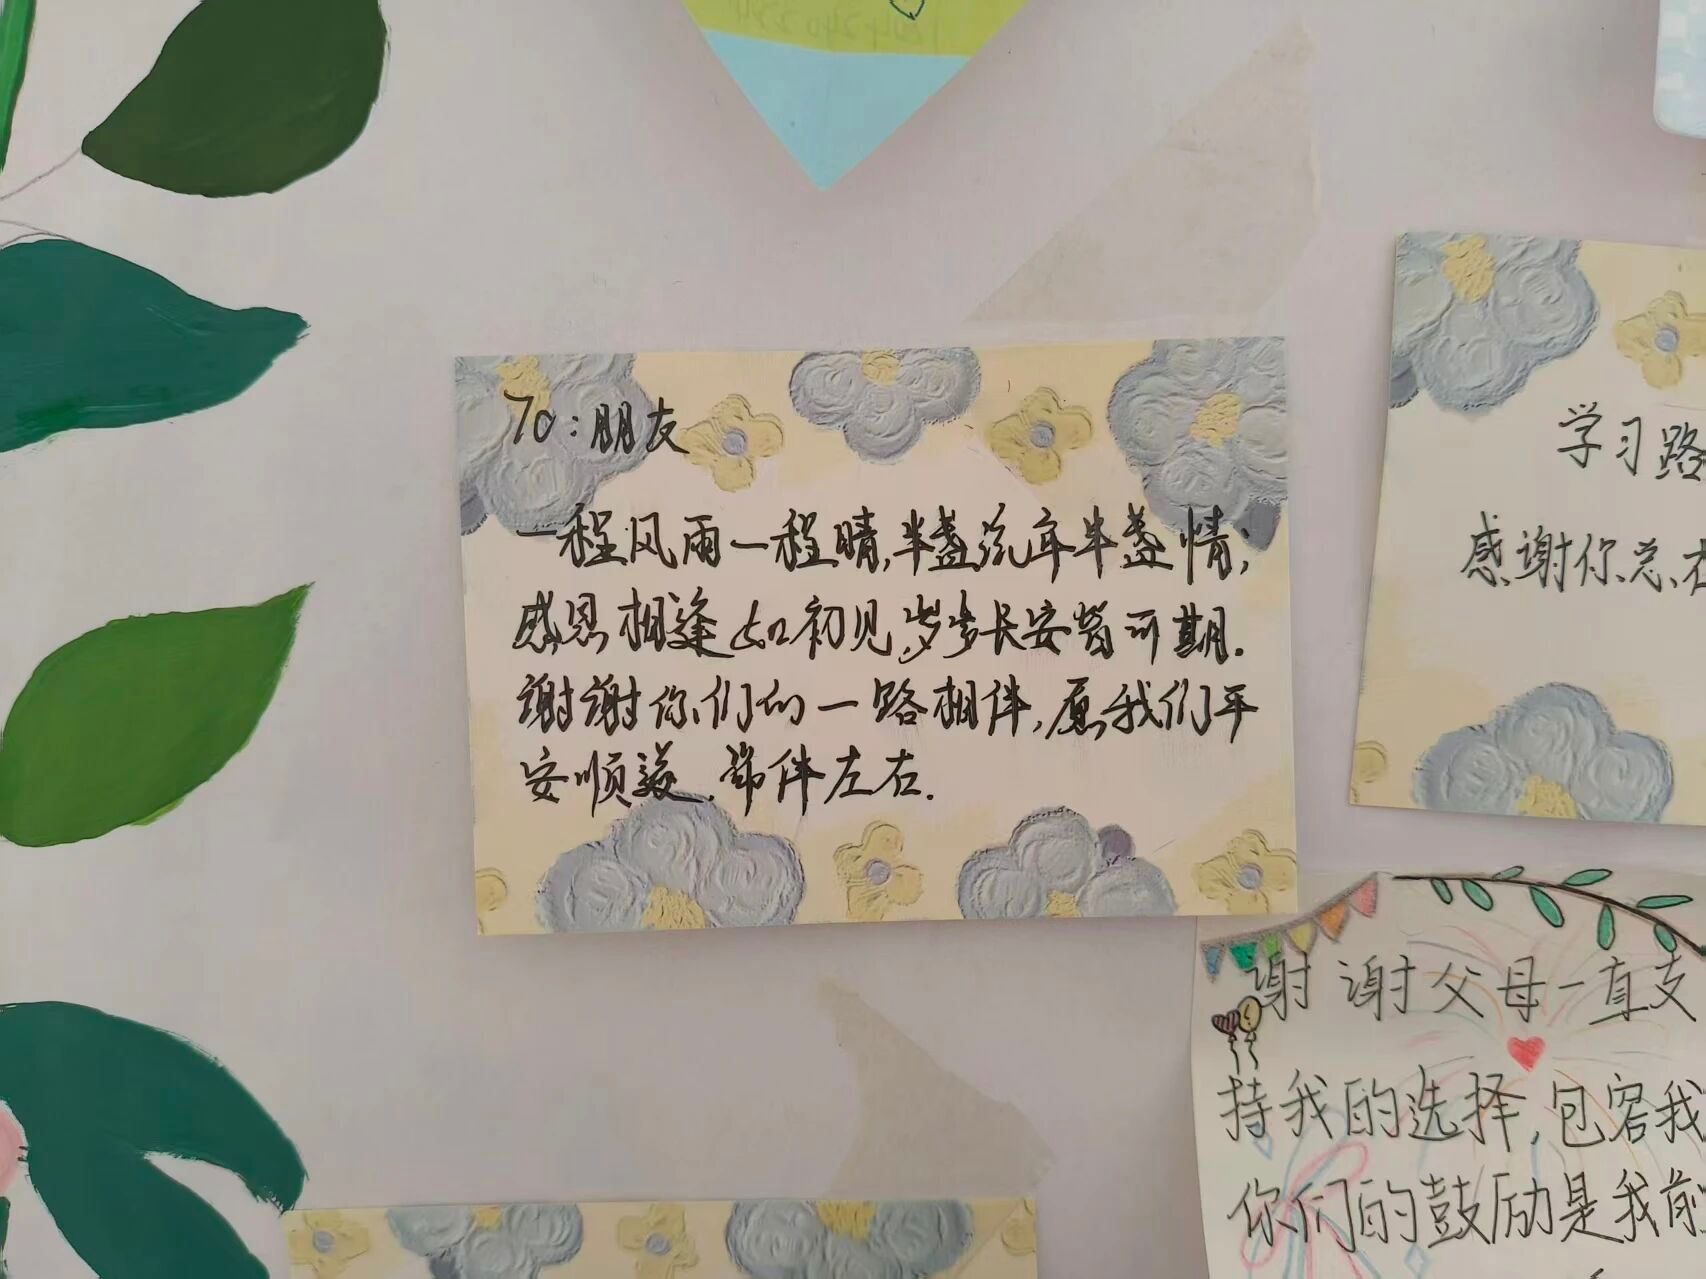 To:朋友
一程风雨一程晴,半盏流年半盏情,
感恩相逢如初见,岁岁长安皆可期.
谢谢你们的一路相伴,愿我们平
安顺遂,常伴左右.
学习路
感谢你总在
谢谢父母一直支
持我的选择,包容我
你们的鼓励是我前